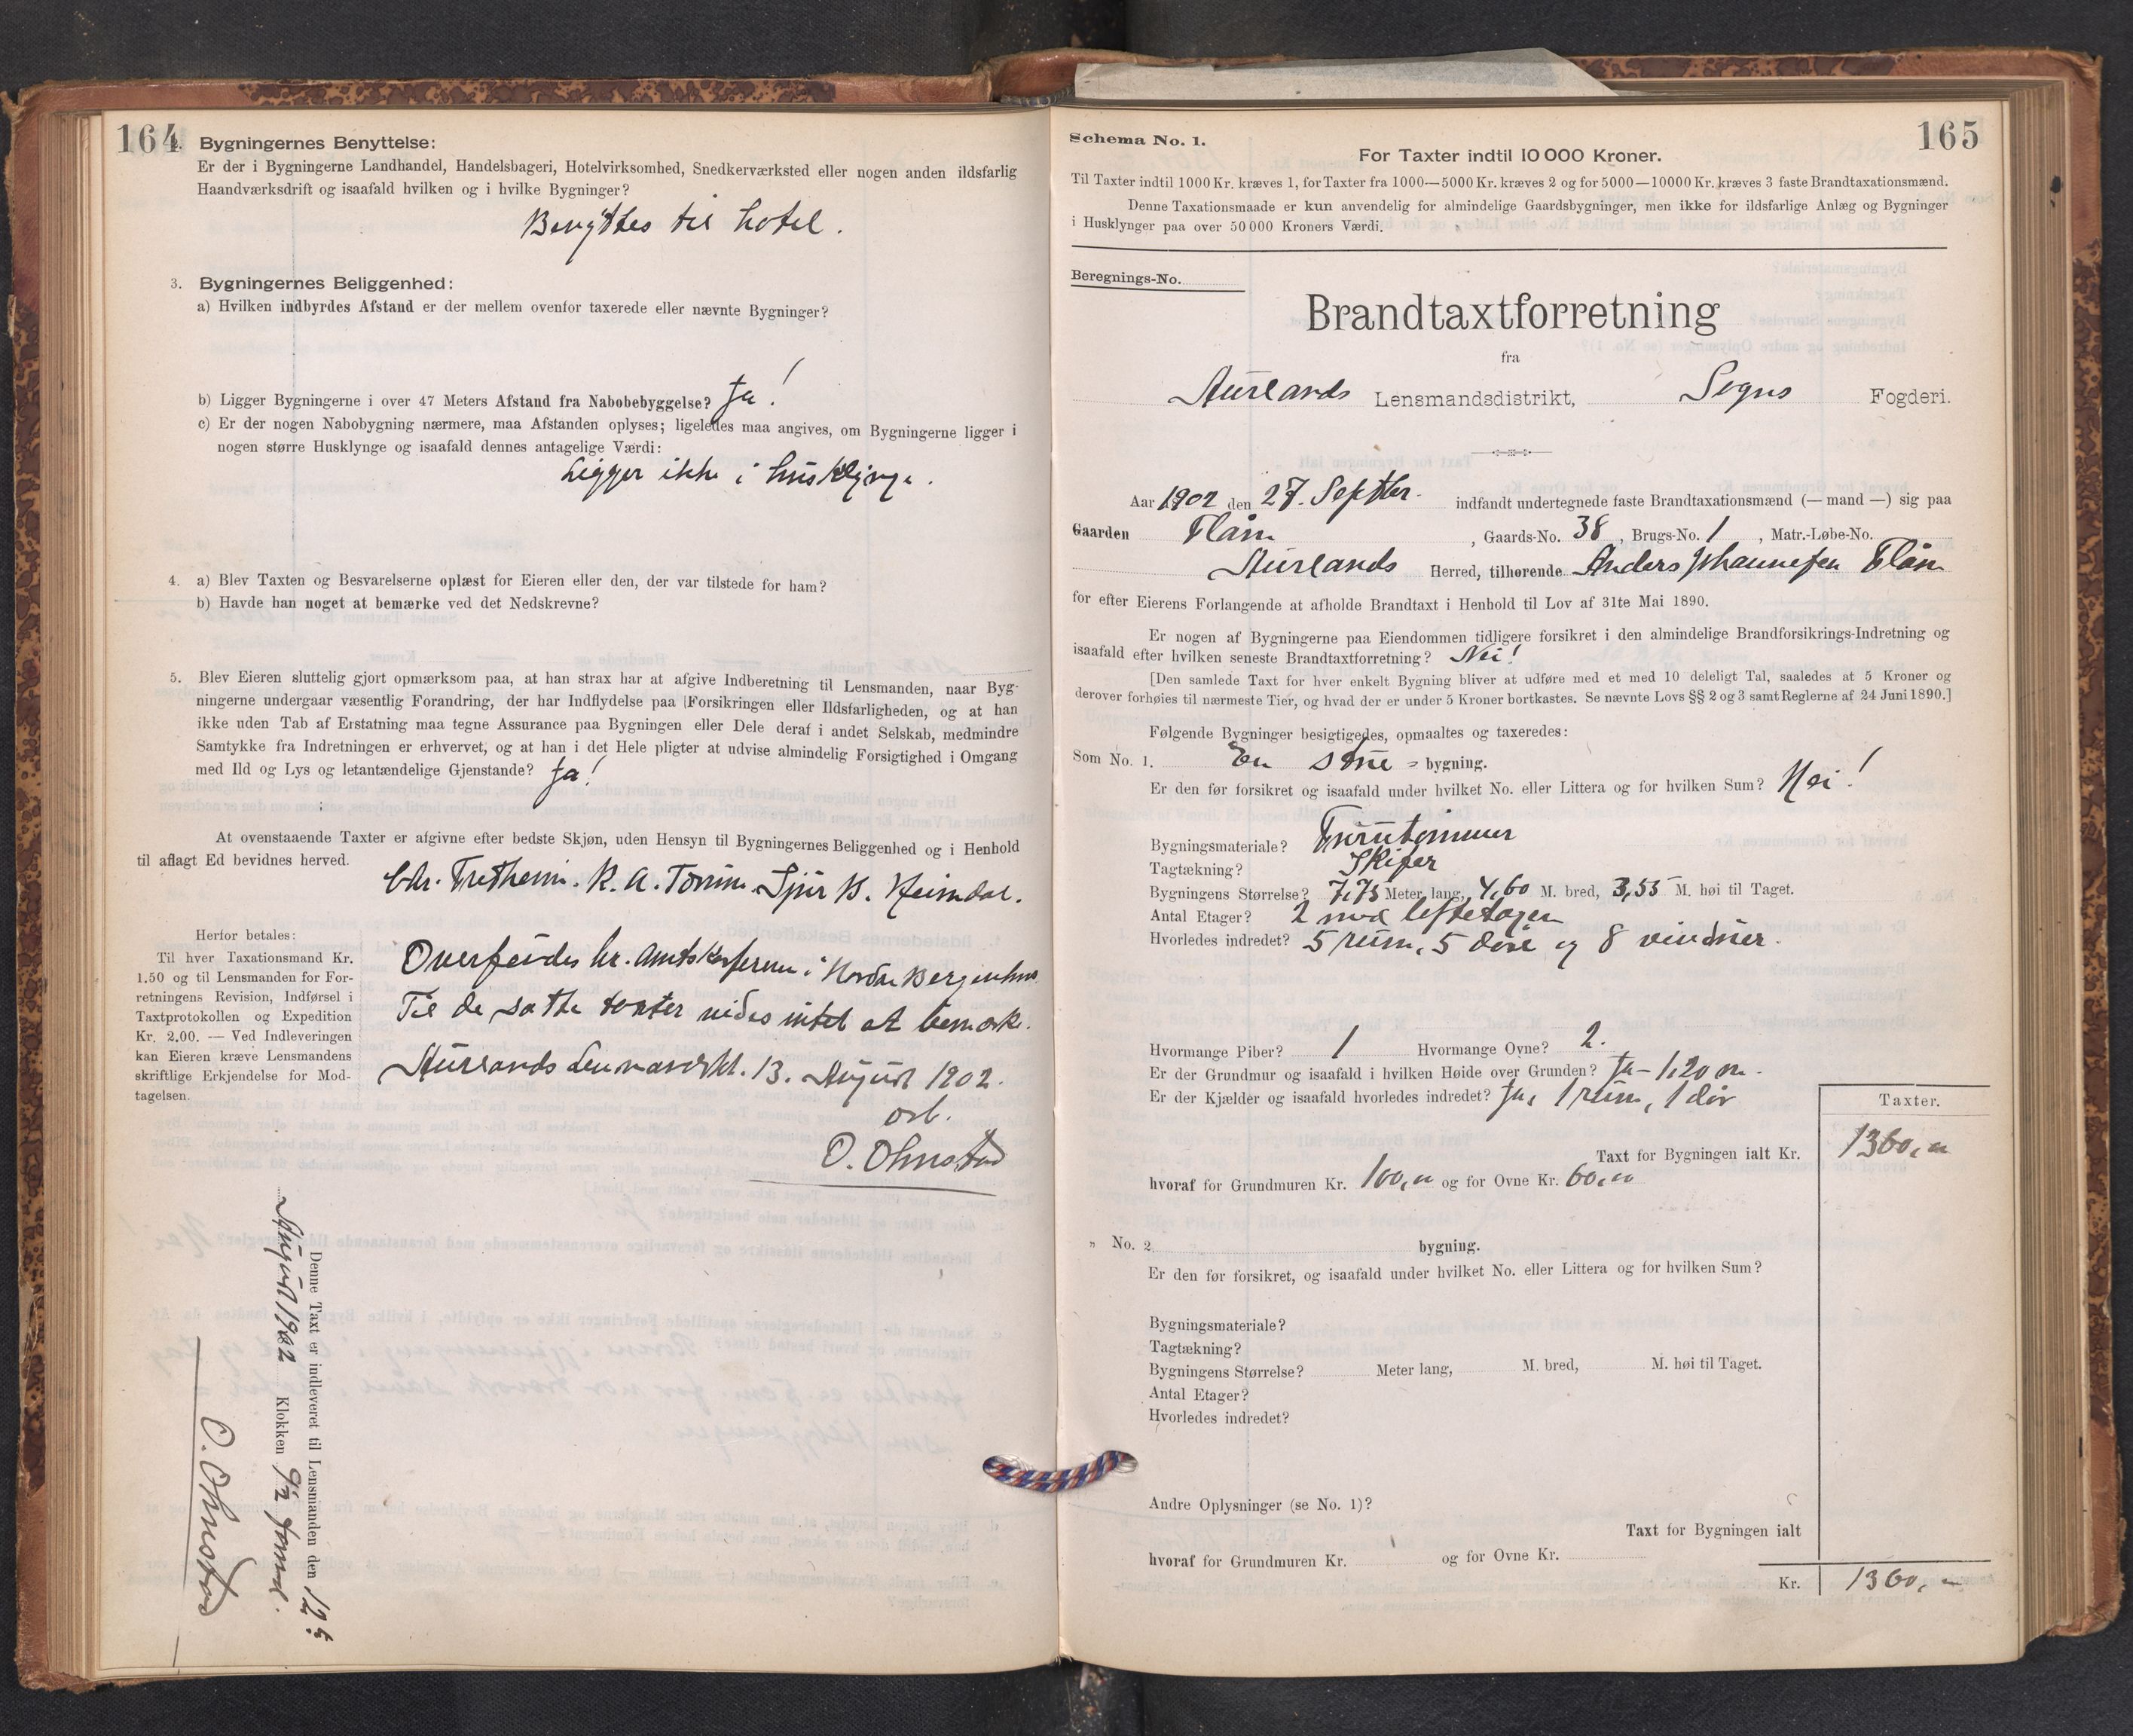 164
Bygningernes Benyttelse:
Er der i Bygningerne Landhandel, Handelsbageri, Hotelvirksomhed, Snedkerværksted eller nogen anden ildsfarlig
Haandværksdrift og isaafald hvilken og i hvilke Bygninger?
Benyttes til hotel.
3. Bygningernes Beliggenhed:
a) Hvilken indbyrdes Afstand er der mellem ovenfor taxerede eller nævnte Bygninger?
b) Ligger Bygningerne i over 47 Meters Afstand fra Nabobebyggelse? Ja!
c) Er der nogen Nabobygning nærmere, maa Afstanden oplyses; ligeledes maa angives, om Bygningerne ligger i
nogen større Husklynge og isaafald dennes antagelige Værdi:
Ligger ikke i husklynge.
4. a) Blev Taxten og Besvarelserne oplæst for Eieren eller den, der var tilstede for ham?
b) Havde han noget at bemærke ved det Nedskrevne?
5. Blev Eieren sluttelig gjort opmærksom paa, at han strax har at afgive Indberetning til Lensmanden, naar Byg-
ningerne undergaar væsentlig Forandring, der har Indflydelse paa Forsikringen eller Ildsfarligheden, og at han
ikke uden Tab af Erstatning maa tegne Assurance paa Bygningen eller Dele deraf i andet Selskab, medmindre
Samtykke fra Indretningen er erhvervet, og at han i det Hele pligter at udvise almindelig Forsigtighed i Omgang
med Ild og Lys og letantændelige Gjenstande? Ja!
At ovenstaaende Taxter er afgivne efter bedste Skjøn, uden Hensyn til Bygningernes Beliggenhed og i Henhold
til aflagt Ed bevidnes herved.
Chr. Fretheim. K. A. Tønim. Sjur K. Heimdal.
Herfor betales:
Til hver Taxationsmand Kr.
1.50 og til Lensmanden for For-
retningens Revision, Indførsel i
Taxtprotokollen og Expedition
Kr. 2.00. — Ved Indleveringen
kan Eieren kræve Lensmandens
skriftlige Erkjendelse for Mod-
tagelsen.
hr. Amtskasserer i Nordre Bergenhus
Til de satte taxter vides intet at bemærke.
Aurlands 13. August 1902.
O. Ohnstad
Denne Taxt er indleveret til Lensmanden den 12te
August 1902 Klokken 9½ form.
O. Ohnstad
165
Schema No. 1.
For Taxter indtil 10 000 Kroner.
Til Taxter indtil 1000 Kr. kræves 1, for Taxter fra 1000—5000 Kr. kræves 2 og for 5000—10000 Kr. kræves 3 faste Brandtaxationsmænd.
Denne Taxationsmaade er kun anvendelig for almindelige Gaardsbygninger, men ikke for ildsfarlige Anlæg og Bygninger
i Husklynger paa over 50 000 Kroners Værdi.
Beregnings-No.
Brandtaxtforretning
fra
Aurlands Lensmandsdistrikt, Sogns Fogderi.
Aar 1902 den 27. Septbr. indfandt undertegnede faste Brandtaxationsmænd (— mand —) sig paa
Gaarden Flåm, Gaards-No. 38, Brugs-No. 1, Matr.-Løbe-No.
Aurlands Herred, tilhørende Anders Johannesen Flåm
for efter Eierens Forlangende at afholde Brandtaxt i Henhold til Lov af 31te Mai 1890.
Er nogen af Bygningerne paa Eiendommen tidligere forsikret i den almindelige Brandforsikrings-Indretning og
isaafald efter hvilken seneste Brandtaxtforretning? Nei!
[Den samlede Taxt for hver enkelt Bygning bliver at udføre med et med 10 deleligt Tal, saaledes at 5 Kroner og
derover forhøies til nærmeste Tier, og hvad der er under 5 Kroner bortkastes. Se nævnte Lovs §§ 2 og 3 samt Reglerne af 24 Juni 1890.]
Følgende Bygninger besigtigedes, opmaaltes og taxeredes:
Som No. 1. En stue-bygning.
Er den før forsikret og isaafald under hvilket No. eller Littera og for hvilken Sum? Nei!
Bygningsmateriale? Furutømmer
Tagtækning? Skifer
Bygningens Størrelse? 7,75 Meter lang, 4,60 M. bred, 3,55 M. høi til Taget.
Antal Etager? 2 med loftetagen
Hvorledes indredet? 5 rum, 5 døre og 8 vinduer.
Hvormange Piber? 1 Hvormange Ovne? 2.
Er der Grundmur og isaafald i hvilken Høide over Grunden? Ja - 1,20 m.
Er der Kjælder og isaafald hvorledes indredet? Ja, 1 rum, 1 dør
Taxter.
Taxt for Bygningen ialt Kr. 1360,00
hvoraf for Grundmuren Kr. 100,00 og for Ovne Kr. 60,00
„ No. 2. bygning.
Er den før forsikret, og isaafald under hvilket No. eller Littera og for hvilken Sum?
Bygningsmateriale?
Tagtækning?
Bygningens Størrelse? Meter lang, M. bred, M. høi til Taget.
Antal Etager?
Hvorledes indredet?
Andre Oplysninger (se No. 1)?
Taxt for Bygningen ialt
hvoraf for Grundmuren Kr. og for Ovne Kr.
Kr. 1360,-